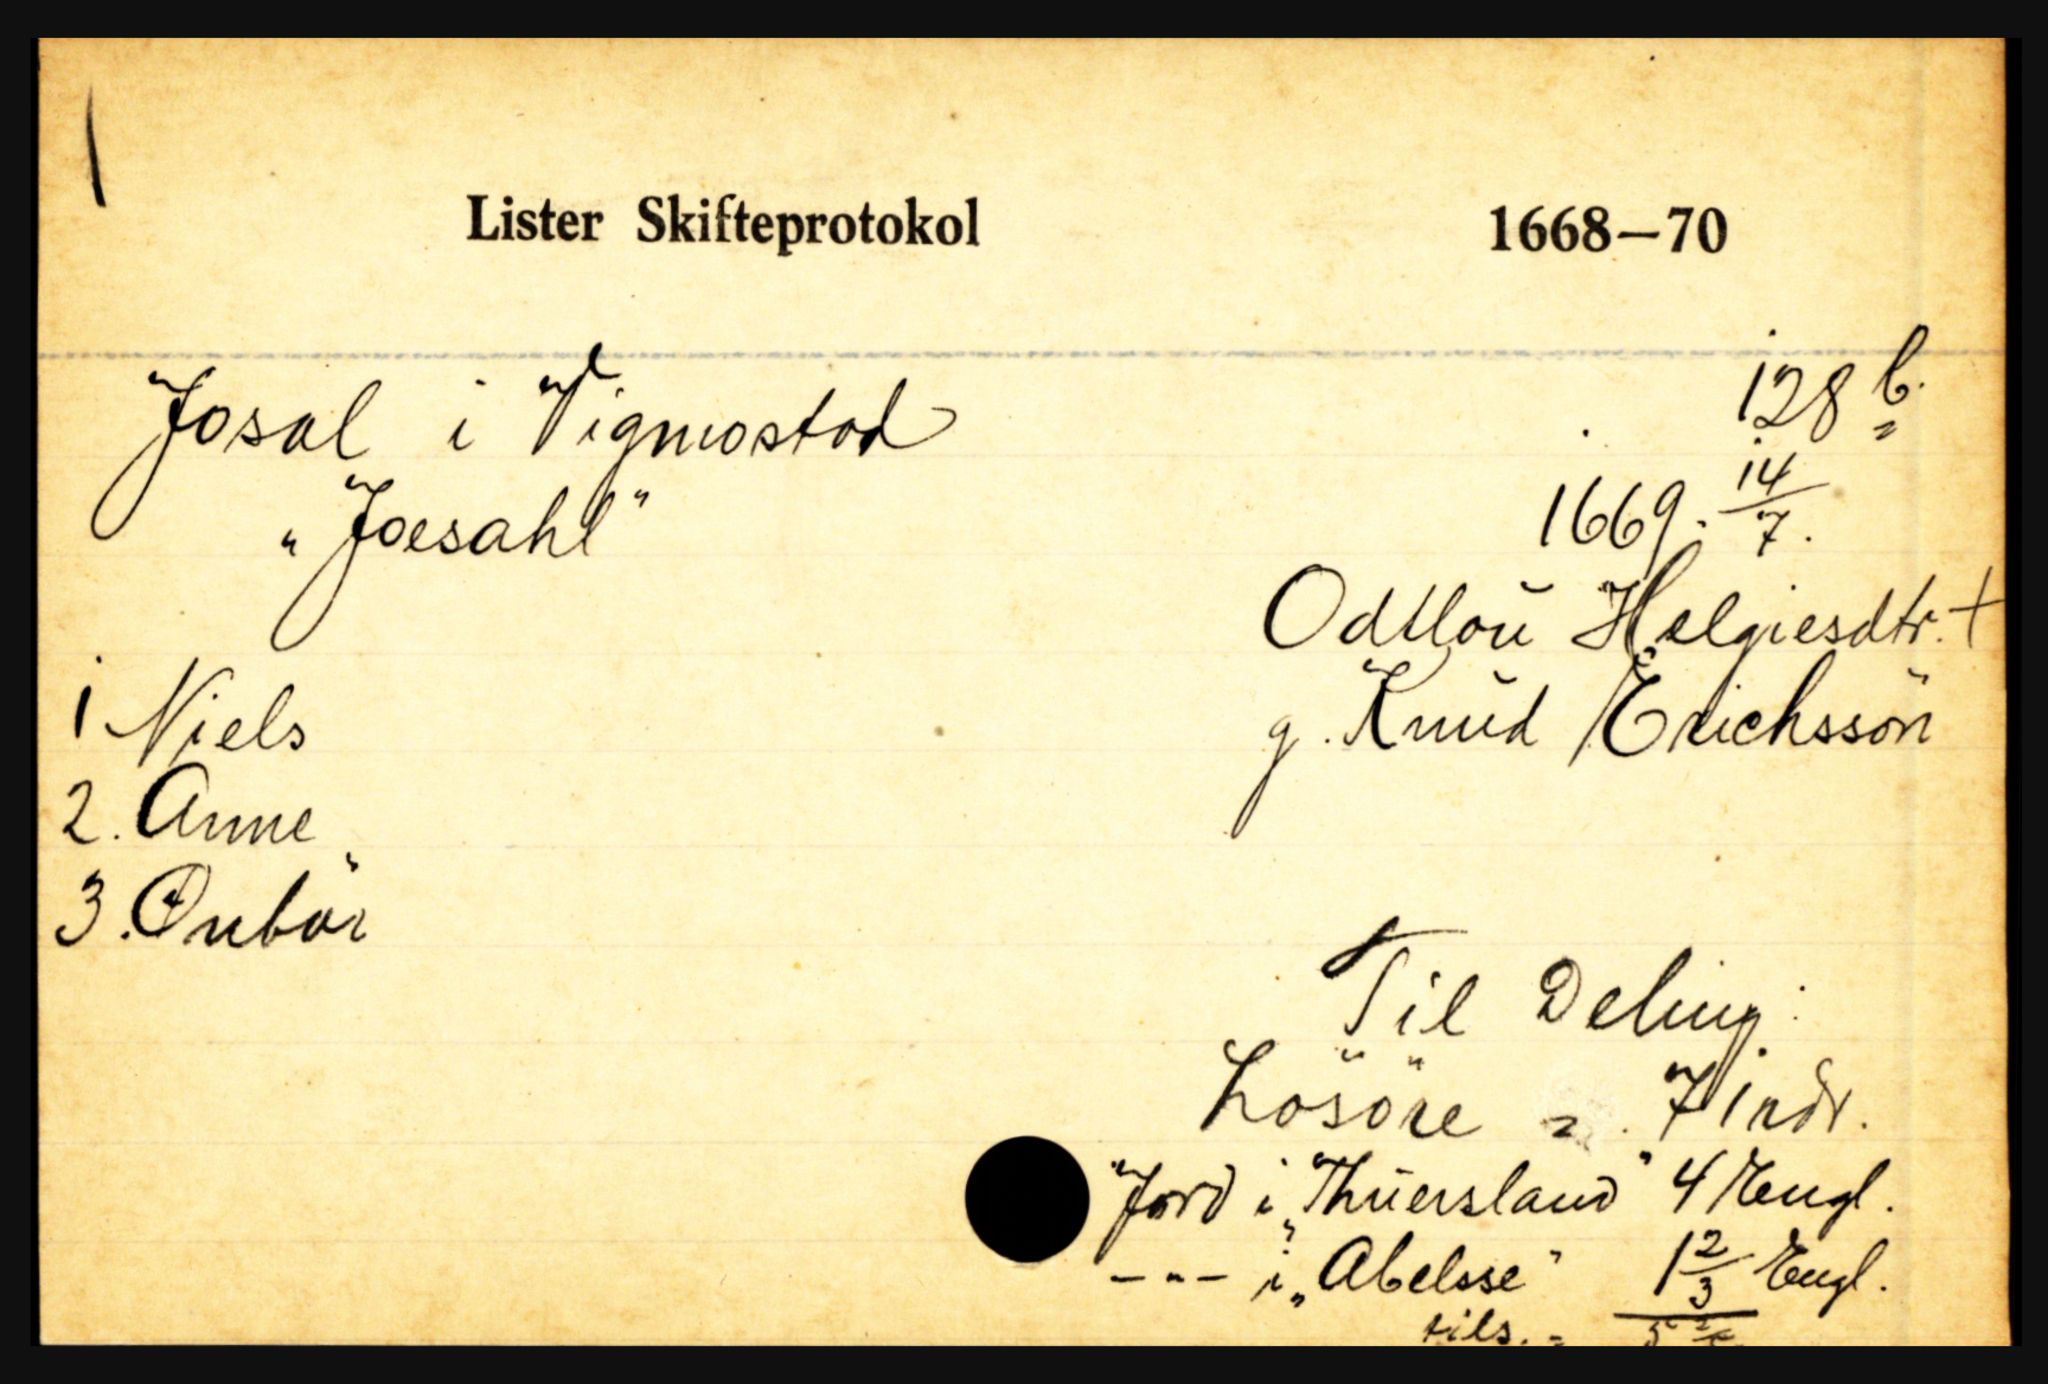 Lister Skifteprotokol 1668–70
Josal i Vigmostad 128 b.
"Joesahl" 1669. 14/7.
Odtlou Helgiesdtr. +
1 Niels g. Knud Erichssön
2. Anne
3. Onbör
Til Deling:
Lösöre = 71 rdr.
Jord i "Thuersland" 4 Engl.
- " - i "Abelsse" 1 2/3 Engl.
tils. = 5 2/3